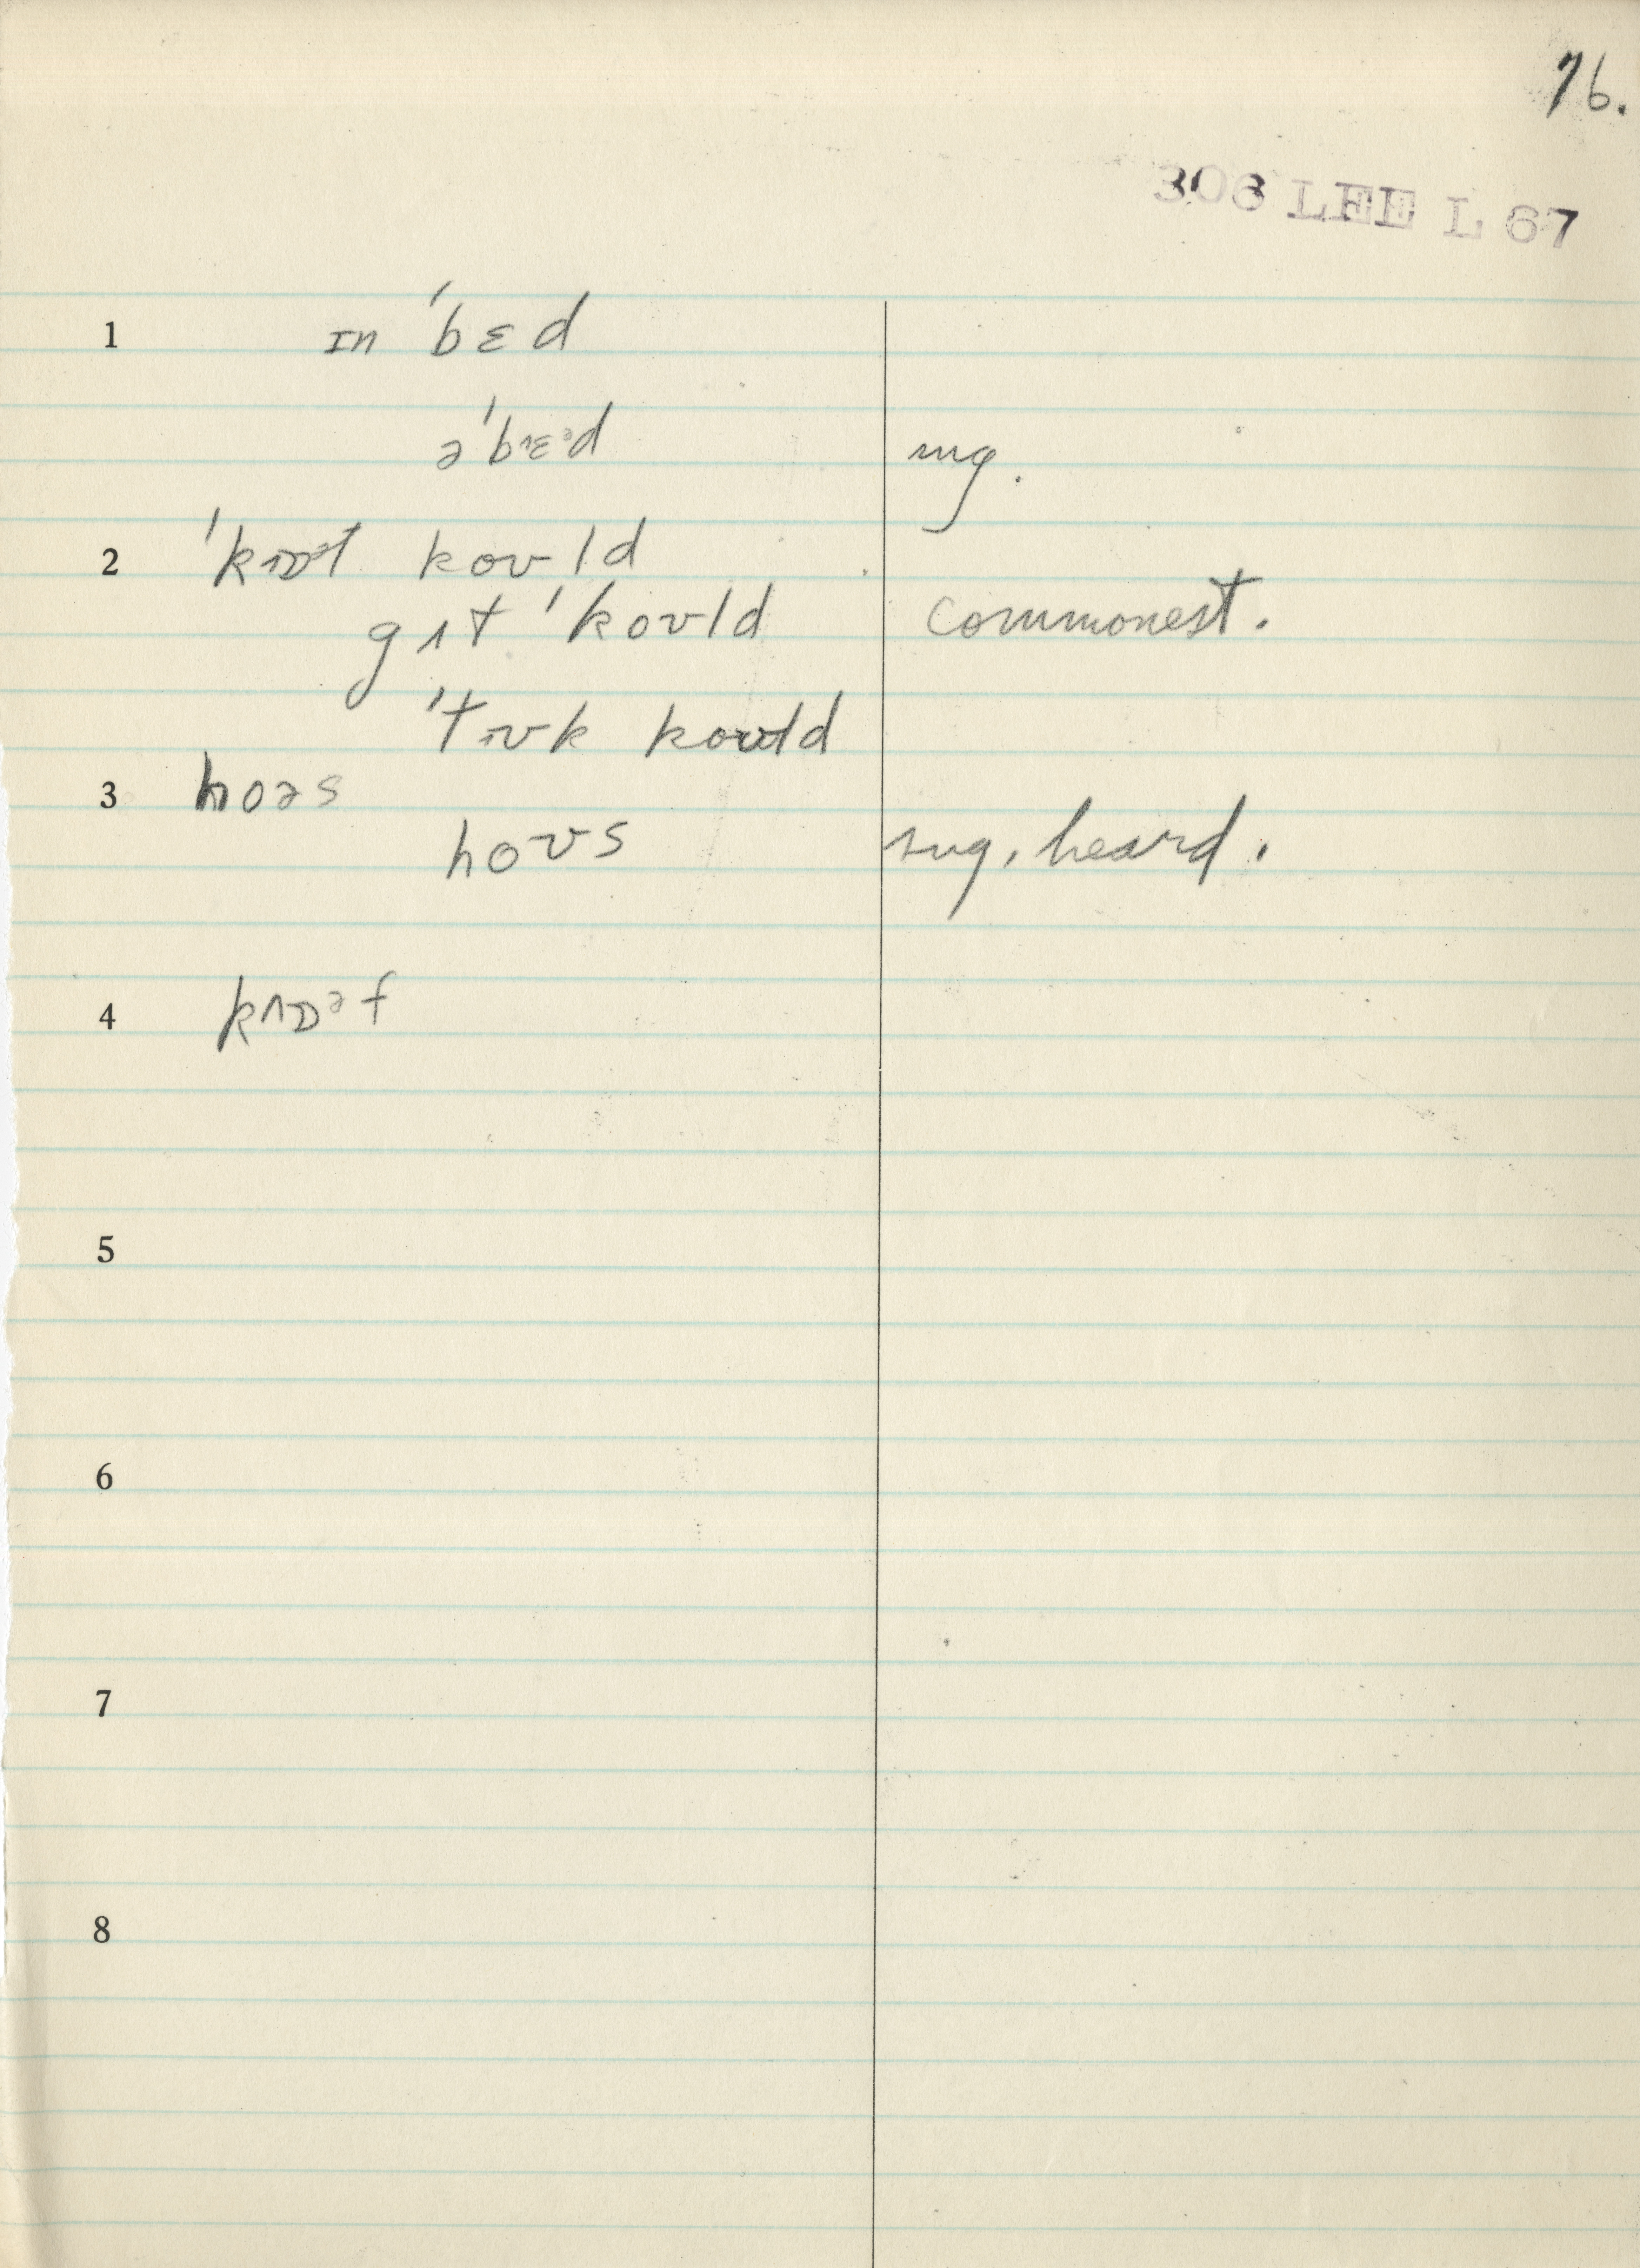 76.
306 LEE L 67
1 ɪn ˈbɛd
əˈbɪɛᵊd sug.
2 ˈkɒᵊt koʊld
gɪt ˈkoʊld commonest.
ˈtʊk koʊld
3 hoəs
hoʊs sug. heard.
4 kɒᵊf
5
6
7
8